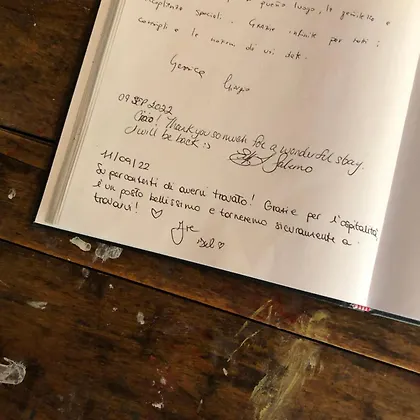 questo luogo, le gentilezze
speciali. Grazie infinite per tutti i
consigli e le nozioni di
Gessica
09 SEP 2022
Ciao! Thank you so much for a wonderful stay.
I will be back :) Salerno
11/09/22
Super contenti di avervi trovato! Grazie per l'ospitalità,
è un posto bellissimo e torneremo sicuramente a
trovarvi! ♡